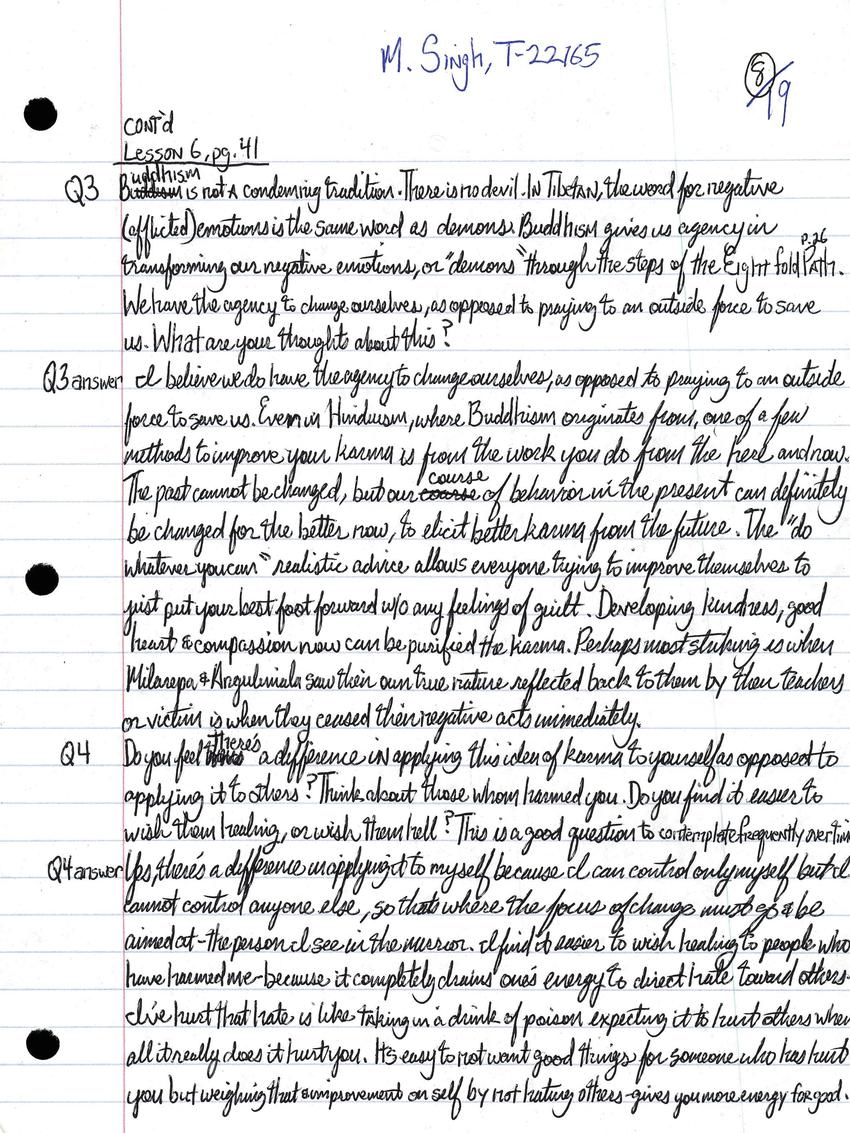 M. Singh, T-22165
8/19
CONT'd
Lesson 6, pg. 41
Q3 Buddhism is not A condemning tradition. There is no devil. IN TibeTAN, the word for negative
(afflicted) emotions is the same word as demons. Buddhism gives us agency in
transforming our negative emotions, or "demons" through the steps of the Eight fold Path. p.26
We have the agency to change ourselves, as opposed to praying to an outside force to save
us. What are your thoughts about this?
Q3 answer I believe we do have the agency to change ourselves, as opposed to praying to an outside
force to save us. Even in Hinduism, where Buddhism originates from, one of a few
methods to improve your karma is from the work you do from the here and now.
The past cannot be changed, but our course of behavior in the present can definitely
be changed for the better now, to elicit better karma from the future. The "do
whatever you can" realistic advice allows everyone trying to improve themselves to
just put your best foot forward w/o any feelings of guilt. Developing kindness, good
heart & compassion now can be purified the karma. Perhaps most striking is when
Milarepa & Angulimala saw their own true nature reflected back to them by their teachers
or victim is when they ceased their negative acts immediately.
Q4 Do you feel there's a difference in applying this idea of karma to yourself as opposed to
applying it to others? Think about those whom harmed you. Do you find it easier to
wish them healing, or wish them hell? This is a good question to contemplate frequently over tim
Q4 answer Yes, there's a difference in applying it to myself because I can control only myself but I
cannot control anyone else, so thats where the focus of change must go & be
aimed at - the person I see in the mirror. I find it easier to wish healing to people who
have harmed me - because it completely drains one's energy to direct hate toward others.
I've hurt that hate is like taking in a drink of poison expecting it to hurt others when
all it really does it hurt you. It's easy to not want good things for someone who has hurt
you but weighing that & improvement on self by not hating others - gives you more energy for good.